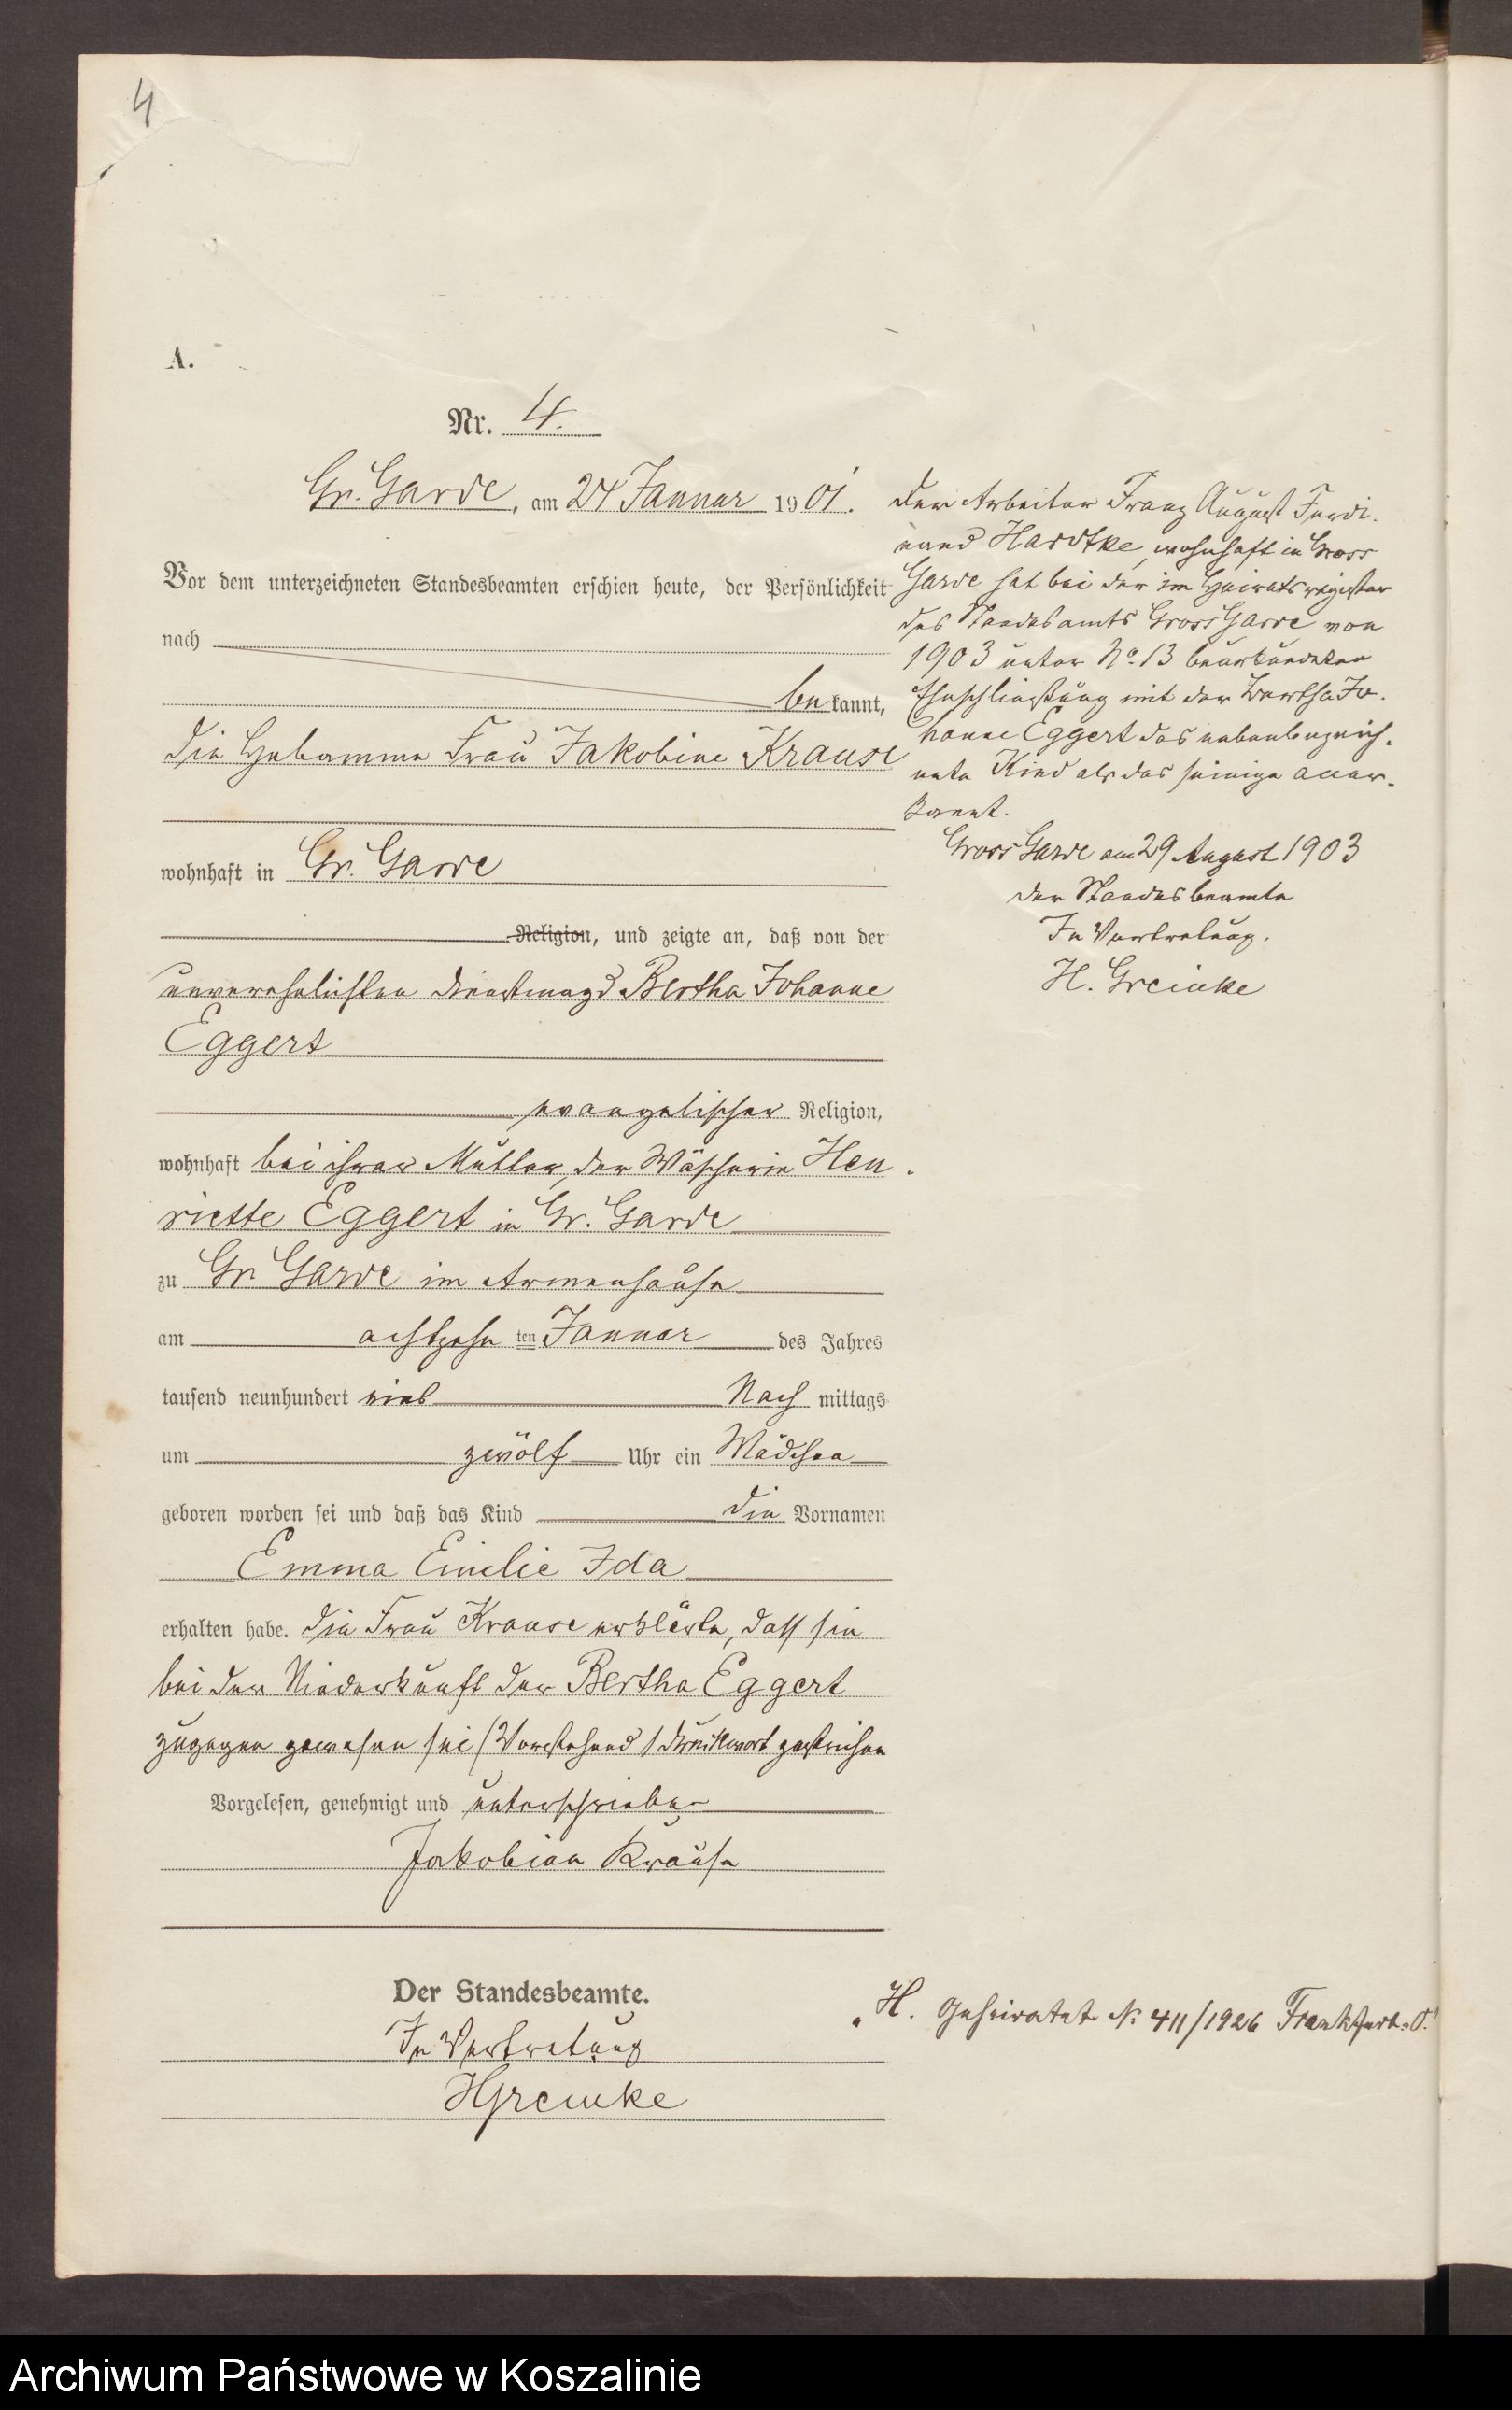 4
A.
Nr. 4.
Gr. Garde, am 24 Januar 1901.
Vor dem unterzeichneten Standesbeamten erschien heute, der Persönlichkeit
nach
bekannt,
die Hebamme Frau Jakobine Krause
wohnhaft in Gr. Garde
Religion, und zeigte an, daß von der
unverehelichten Dienstmagd Bertha Johanne
Eggert
evangelischer Religion,
wohnhaft bei ihrer Mutter, der Wäscherin Hen-
riette Eggert in Gr. Garde
zu Gr. Garde im Armenhause
am achtzehnten Januar des Jahres
tausend neunhundert eins Nachmittags
um zwölf Uhr ein Mädchen
geboren worden sei und daß das Kind die Vornamen
Emma Emilie Ida
erhalten habe. Die Frau Krause erklärte, daß sie
bei der Niederkunft der Bertha Eggert
zugegen gewesen sei (Vorstehend 1 Druckwort gestrichen
Vorgelesen, genehmigt und unterschrieben
Jakobine Krause
Der Standesbeamte.
In Vertretung
HGreinke
Der Arbeiter Franz August Ferdi-
nand Hardtke, wohnhaft in Gross
Garde hat bei der im Heiratsregister
des Standesamts Gross Garde von
1903 unter No. 13 beurkundeten
Eheschließung mit der Bertha Jo-
hanne Eggert das nebenbezeich-
nete Kind als das seinige aner-
kannt.
Gross Garde am 29 August 1903
Der Standesbeamte
In Vertretung.
H. Greinke
H. Geheiratet No 411/1926 Frankfurt-O.
Archiwum Państwowe w Koszalinie